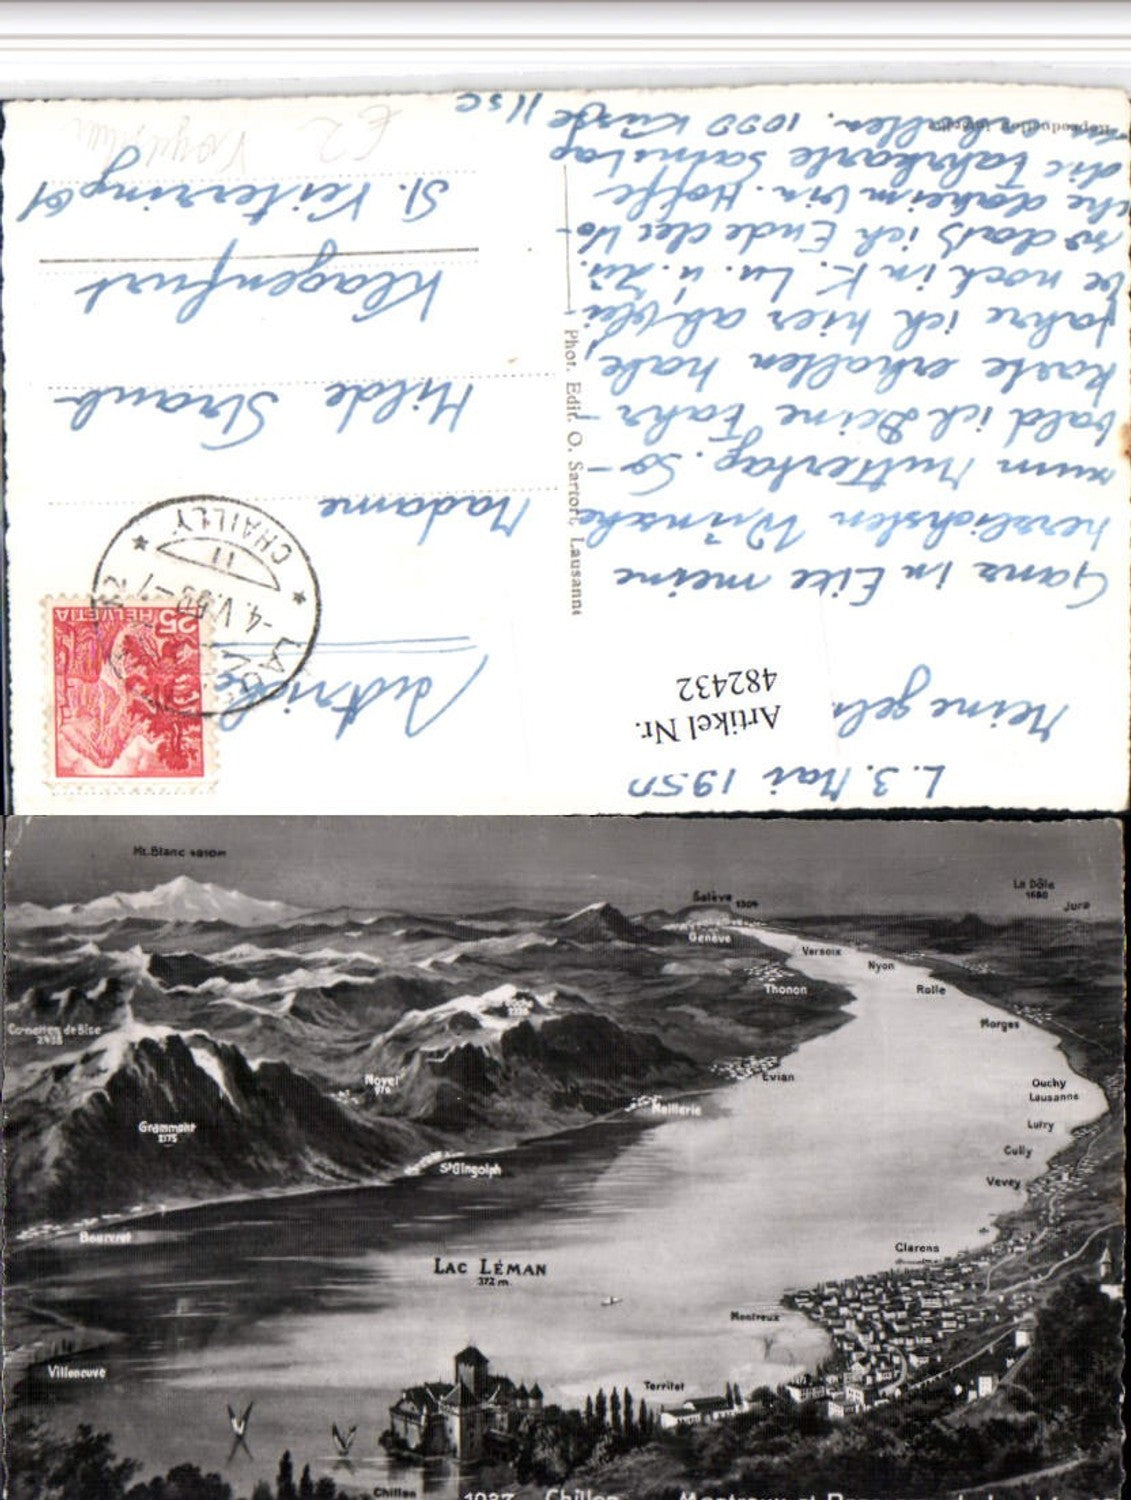 L. 3. Mai 1950
Meine gel
Ganz in Eile meine
herzlichsten Wünsche
zum Muttertag. So-
bald ich Deine Fahr-
karte erhalten habe,
fahre ich hier ab, blei-
be noch in K. Lu. u. Zü.
so daß ich Ende der Wo-
che daheim bin. Hoffe
die Fahrkarte Samstag
1000 Küsse Ilse
Artikel Nr.
482432
Reproduction interdite
Phot. Edit. O. Sartori, Lausanne
HELVETIA
25
CHAILLY
11
-4.V.50
Madame
Hilde Straub
Klagenfurt
St. Veiterring 61
€2
Mt. Blanc 4810m
Salève 1304
La Dôle
1680
Jura
Genève
Versoix
Nyon
Thonon
Rolle
Morges
Cornettes de Bise
2438
Novel
Evian
Ouchy
Lausanne
Meillerie
Grammont
2175
Lutry
St Gingolph
Cully
Vevey
Bouveret
Clarens
LAC LÉMAN
372 m
Montreux
Villeneuve
Territet
Chillon
1037 Chillon